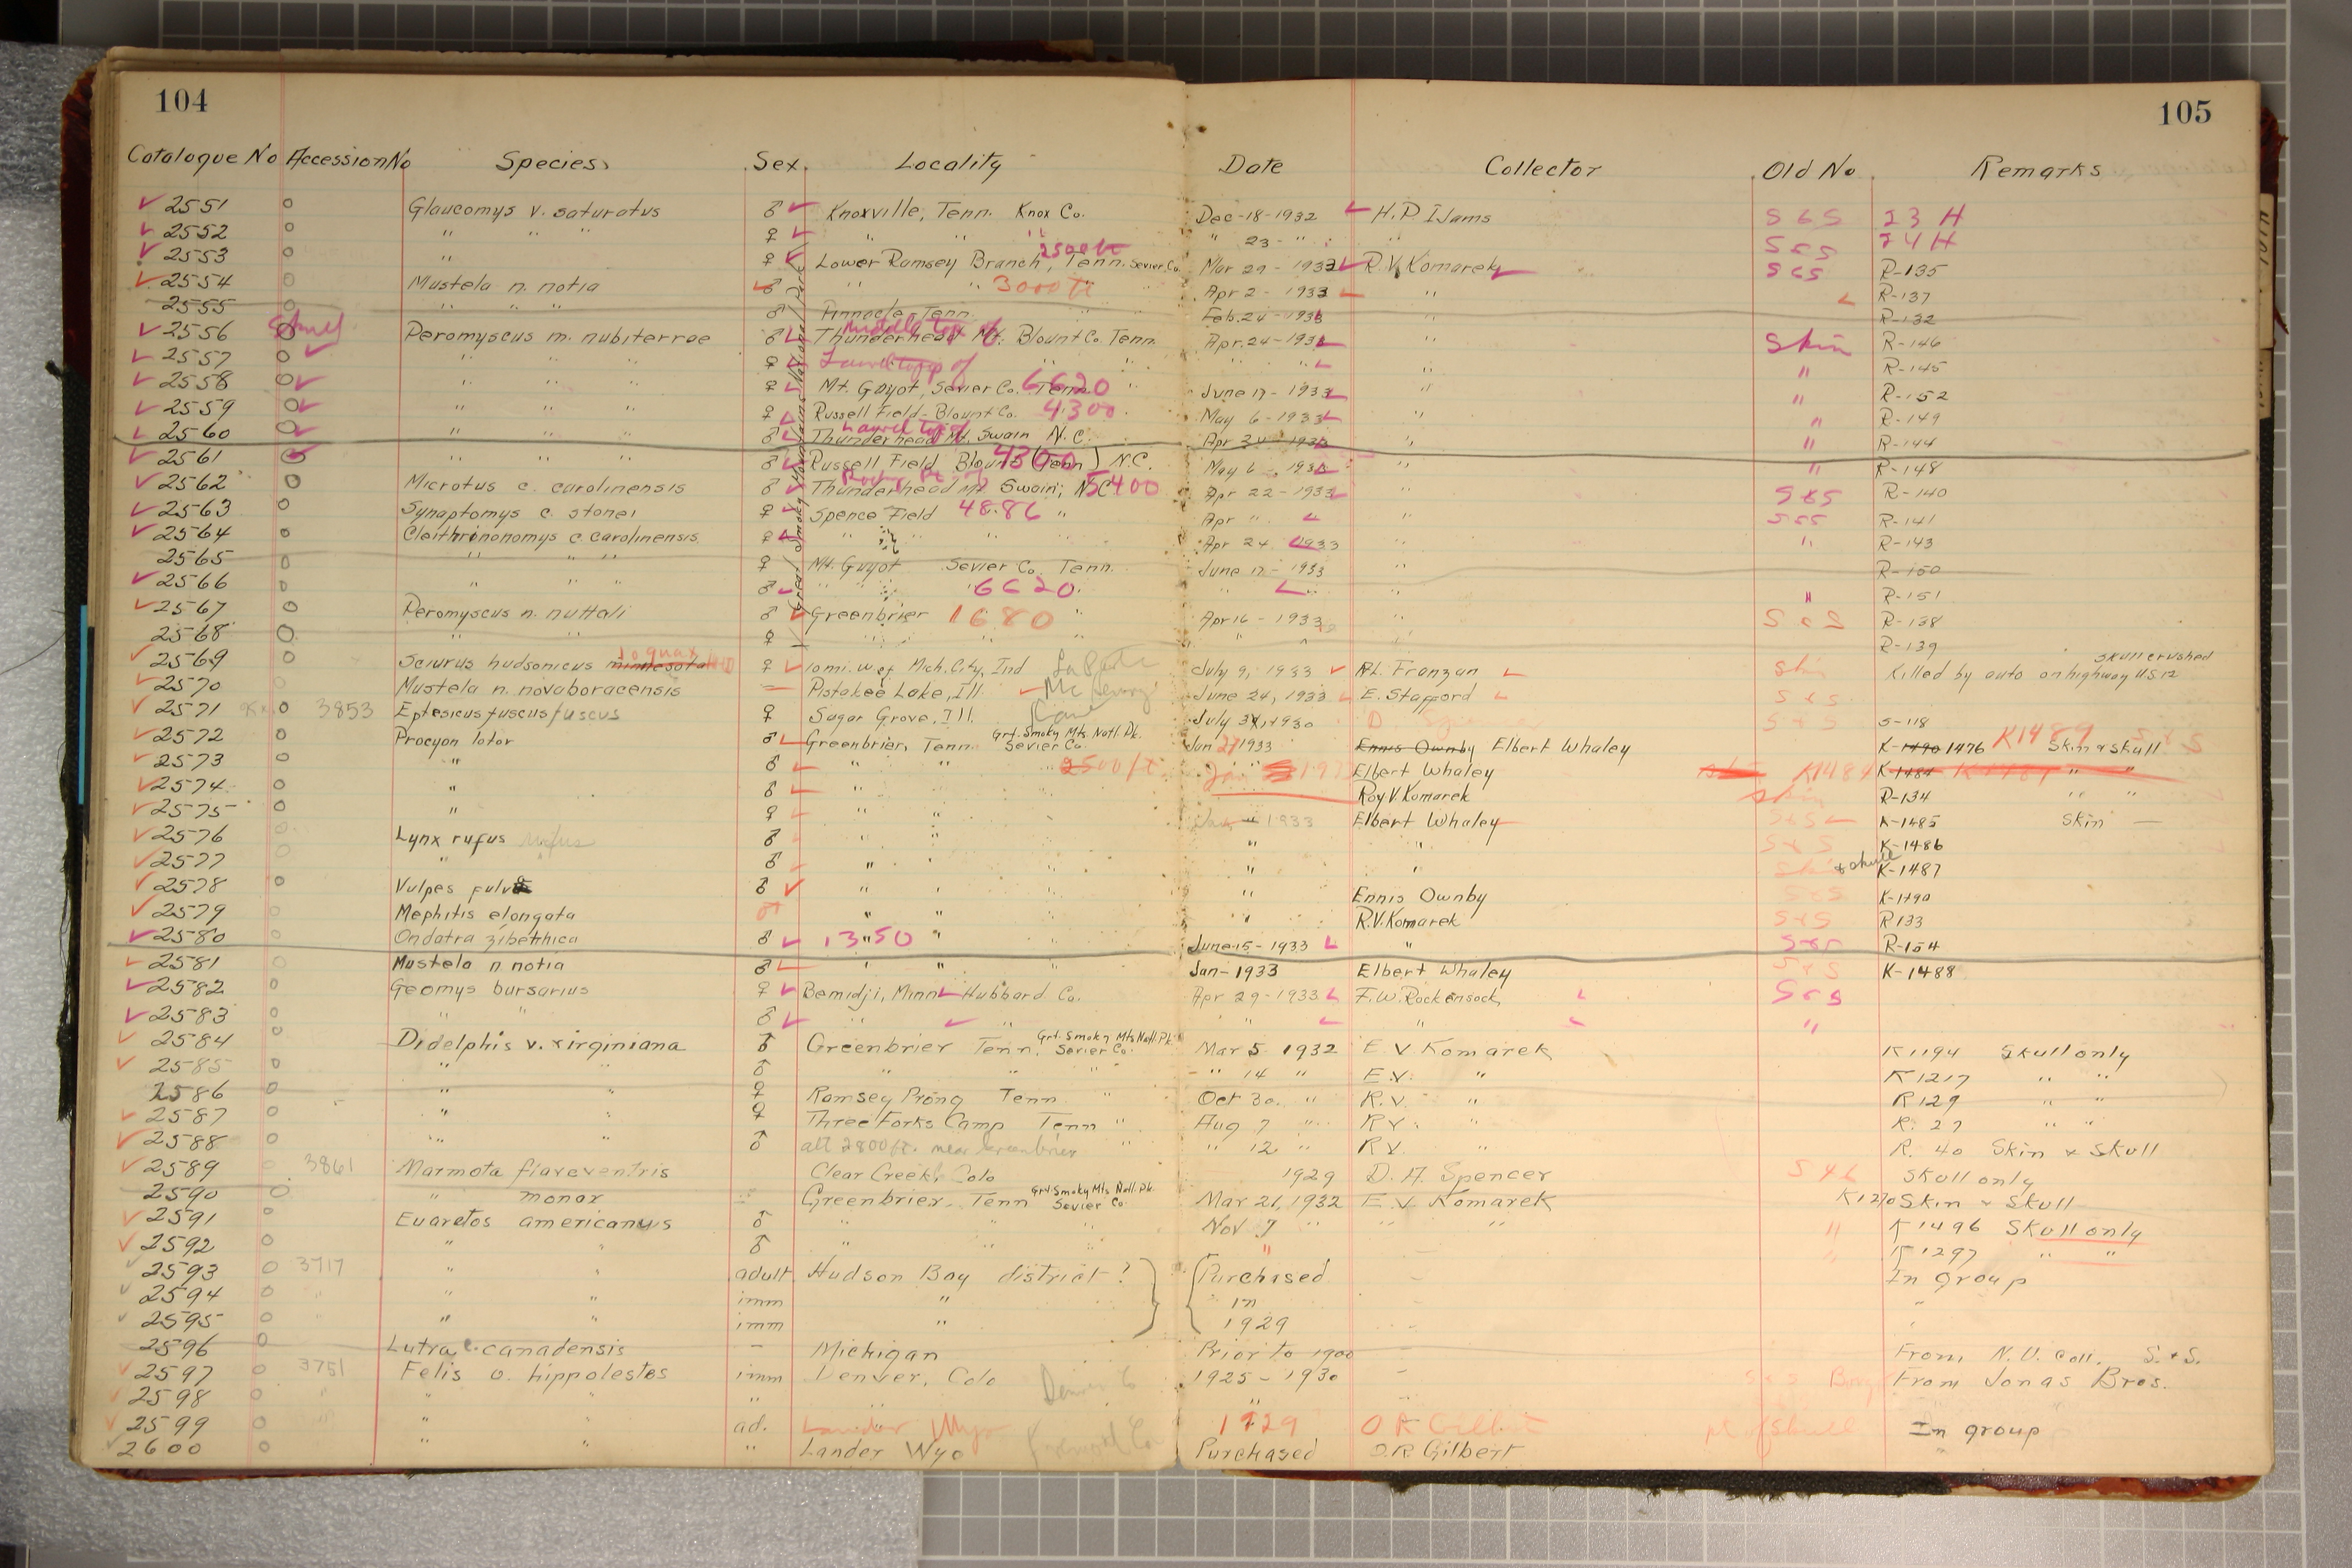 104
105
Catalogue No Accession No Species Sex Locality Date Collector Old No Remarks
2551 0 Glaucomys v. saturatus ♂ Knoxville, Tenn. Knox Co. Dec-18-1932 H.P. IJams S & S I3H
2552 0 " " " ♀ " " " " 23 - " " S & S I4H
2553 0 " ♀ Lower Ramsey Branch, Tenn. Sevier Co. 2500 ft Mar 29-1933 R.V. Komarek S & S R-135
2554 0 Mustela n. notia ♂ " " 3000 ft Apr 2-1933 " R-137
2555 0 " " " ♂ Pinnacle, Tenn. Feb. 24-1933 R-132
2556 0 Peromyscus m. nubiterrae ♂ Thunderhead Mt. Blount Co. Tenn. Middle top of Apr. 24-1933 " Skin R-146
2557 0 " " " ♀ Laurel top of " " " " " " R-145
2558 0 " " " ♀ Mt. Guyot, Sevier Co. Tenn 6620 " June 17-1933 " " R-152
2559 0 " " " ♀ Russell Field-Blount Co. 4300 May 6-1933 " " R-149
2560 0 " " " ♂ Thunderhead Mt. Swain N.C. Laurel top of Apr 24-1933 " " R-144
2561 0 " " " ♂ Russell Field Blount (Tenn) N.C. 4300 May 6-1933 " " R-148
2562 0 Microtus c. carolinensis ♂ Thunderhead Mt Swain, N.C. Rocky Pt. of 5400 Apr 22-1933 " S & S R-140
2563 0 Synaptomys c. stonei ♀ Spence Field 4886 " Apr " " S & S R-141
2564 0 Cleithrionomys c. carolinensis ♀ " " " " Apr 24 1933 " " R-143
2565 " " " ♀ Mt. Guyot Sevier Co. Tenn. June 17-1933 " R-150
2566 0 " " " ♂ " " 6620 " " " R-151
2567 0 Peromyscus n. nuttali ♂ Greenbrier 1680 " Apr 16-1933 " S & S R-138
2568 0 " " ♀ " " " " " R-139
2569 0 Sciurus hudsonicus minnesota loquax ♀ 10 mi. W of Mich. City, Ind La Porte July 9, 1933 R.L. Franzen Skin Killed by auto on highway U.S. 12 skull crushed
2570 0 Mustela n. novaboracensis — Pistakee Lake, Ill. McHenry June 24, 1933 E. Stafford S & S
2571 0 3853 Eptesicus fuscus fuscus ♀ Sugar Grove, Ill. Kane July 1930 S & S S-118
2572 0 Procyon lotor ♂ Greenbrier, Tenn. Grt. Smoky Mts. Natl. Pk. Sevier Co. Jan 27 1933 Ennis Ownby Elbert Whaley K-1490 1476 K1489 Skin & skull
2573 0 " ♂ " " 2500 ft Elbert Whaley K1484 K-1484 " "
2574 0 " ♂ " Roy V. Komarek R-134 " "
2575 0 " ♀ " " 1933 Elbert Whaley S & S K-1485 Skin —
2576 0 Lynx rufus rufus ♂ " " " " S & S K-1486
2577 0 " ♂ " " " " & skull K-1487
2578 0 Vulpes fulva ♂ " " " " Ennis Ownby S & S K-1490
2579 0 Mephitis elongata " " " R.V. Komarek S & S R 133
2580 0 Ondatra zibethica ♂ 1350 " " June-15-1933 " S & S R-154
2581 0 Mustela n notia ♂ " " " Jan-1933 Elbert Whaley S & S K-1488
2582 0 Geomys bursarius ♀ Bemidji, Minn Hubbard Co. Apr 29-1933 F.W. Rockensock S & S
2583 0 " " ♂ " " " " "
2584 0 Didelphis v. virginiana ♂ Greenbrier Tenn. Grt. Smoky Mts Natl. Pk. Sevier Co. Mar 5 1932 E.V. Komarek K1194 Skull only
2585 0 " " ♂ " " " " 14 " E.V. " K1217 " "
2586 0 " " ♀ Ramsey Prong Tenn. " Oct 30. " R.V. " R129 " "
2587 0 " " ♀ Three Forks Camp Tenn " Aug 7 " R.V. " R. 27 " "
2588 0 " " ♂ alt 2800 ft. near Greenbrier " " 12 " R.V. " R. 40 Skin & Skull
2589 0 3861 Marmota flaveventris Clear Creek, Colo 1929 D.A. Spencer Skull only
2590 0 " monax Greenbrier, Tenn Grt. Smoky Mts. Natl. Pk. Sevier Co. Mar 21, 1932 E.V. Komarek K1270 Skin & Skull
2591 0 Euarctos americanus ♂ " " " Nov. 7 " " " " K1496 Skull only
2592 0 " " ♂ " " " " K1297 " "
2593 0 3717 " " adult Hudson Bay district? Purchased In group
2594 0 " " " imm " in "
2595 0 " " " imm " 1929 "
2596 0 Lutra c. canadensis – Michigan Prior to 1900 – From N.U. Coll. S. & S.
2597 0 3751 Felis o. hippolestes imm Denver, Colo Denver Co 1925-1930 – From Jonas Bros.
2598 0 " " " " " " "
2599 0 " " " ad. Lander Wyo 1929 O R Gilbert pt of skull In group
2600 0 " " " Lander Wyo Fremont Co Purchased O.R. Gilbert "
Great Smoky Mountains National Park